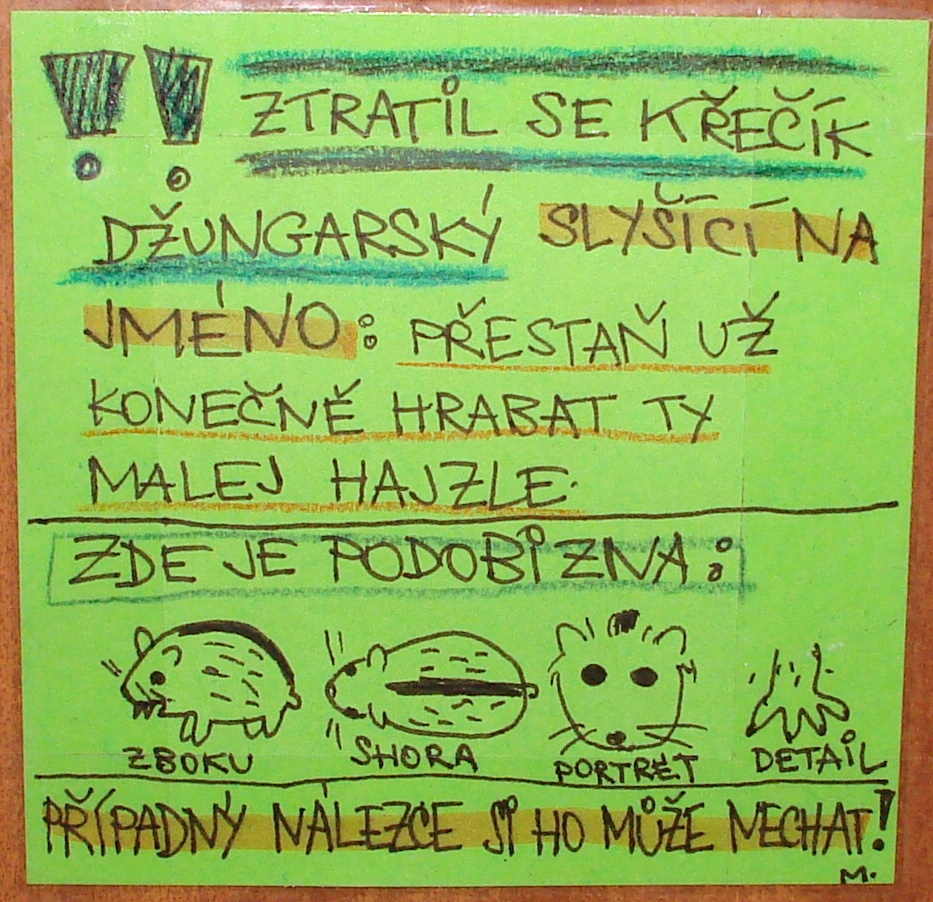 !! ZTRATIL SE KŘEČÍK
DŽUNGARSKÝ SLYŠÍCÍ NA
JMÉNO: PŘESTAŇ UŽ
KONEČNĚ HRABAT TY
MALEJ HAJZLE.
ZDE JE PODOBIZNA:
ZBOKU SHORA PORTRÉT DETAIL
PŘÍPADNÝ NÁLEZCE SI HO MŮŽE NECHAT!
M.